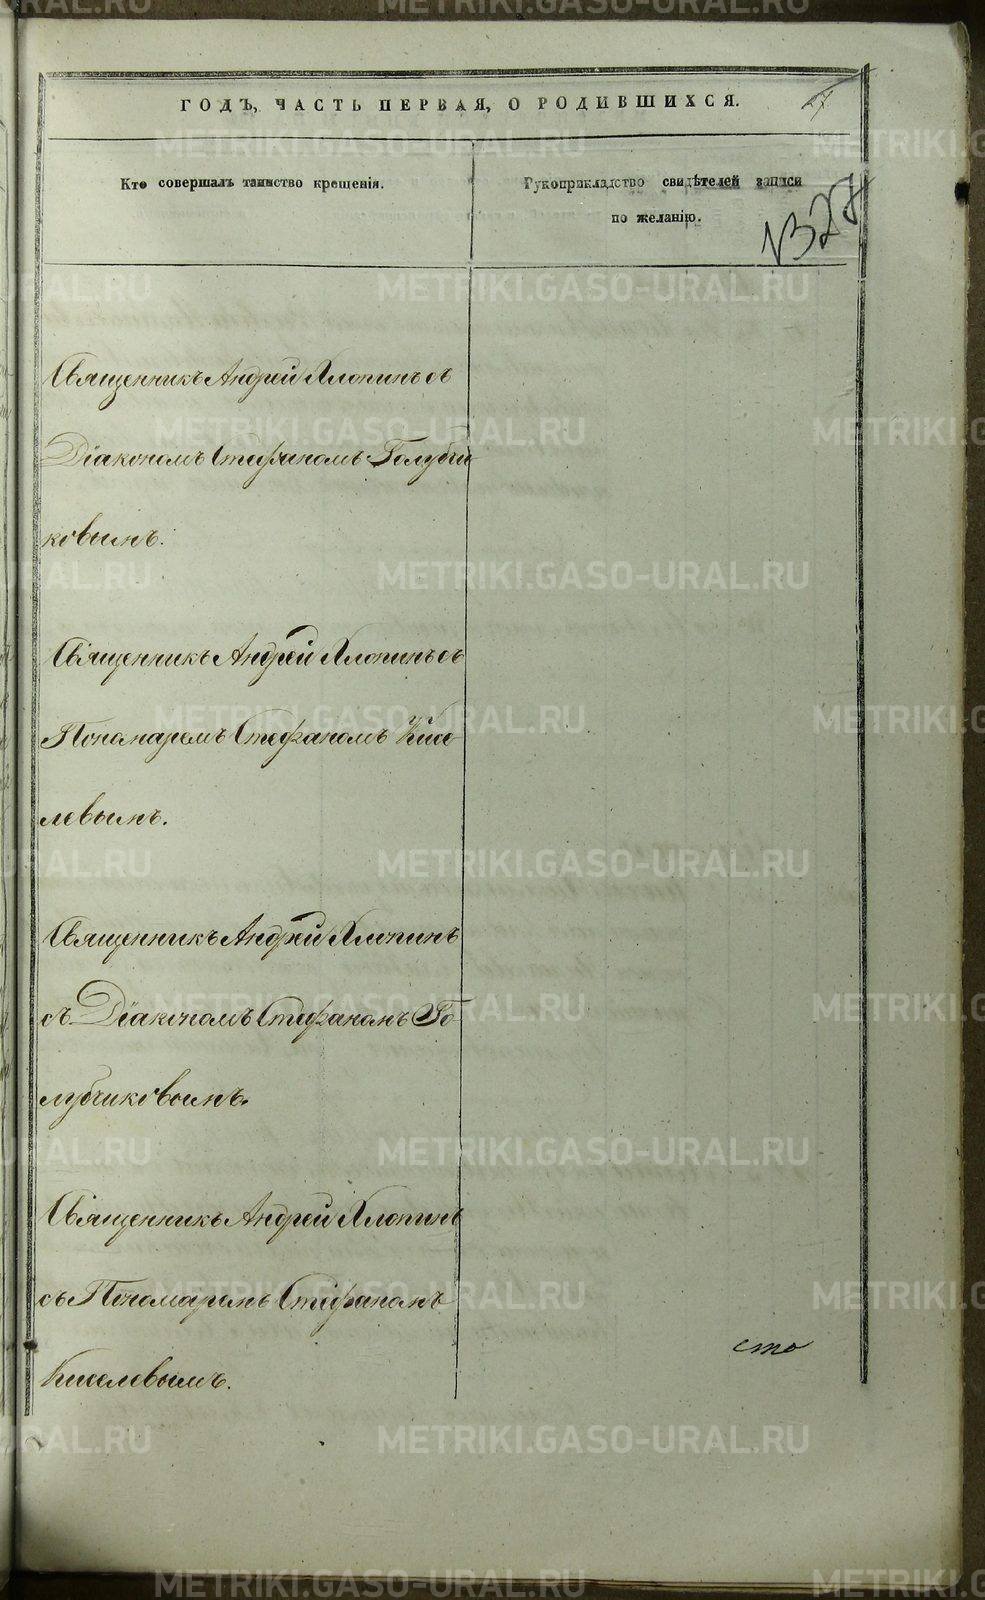 ГОДЪ, ЧАСТЬ ПЕРВАЯ, О РОДИВШИХСЯ.
27
Кто совершалъ таинство крещенія.
Рукоприкладство свидѣтелей записи
по желанію.
1327
Священникъ Андрей Хлопинъ съ
Діакономъ Стефаномъ Голубчи
ковымъ.
Священникъ Андрей Хлопинъ съ
Пономаремъ Стефаномъ Кисе
левымъ.
Священникъ Андрей Хлопинъ
съ Діакономъ Стефаномъ Го
лубчиковымъ.
Священникъ Андрей Хлопинъ
съ Пономаремъ Стефаномъ
Киселевымъ.
сто
METRIKI.GASO-URAL.RU